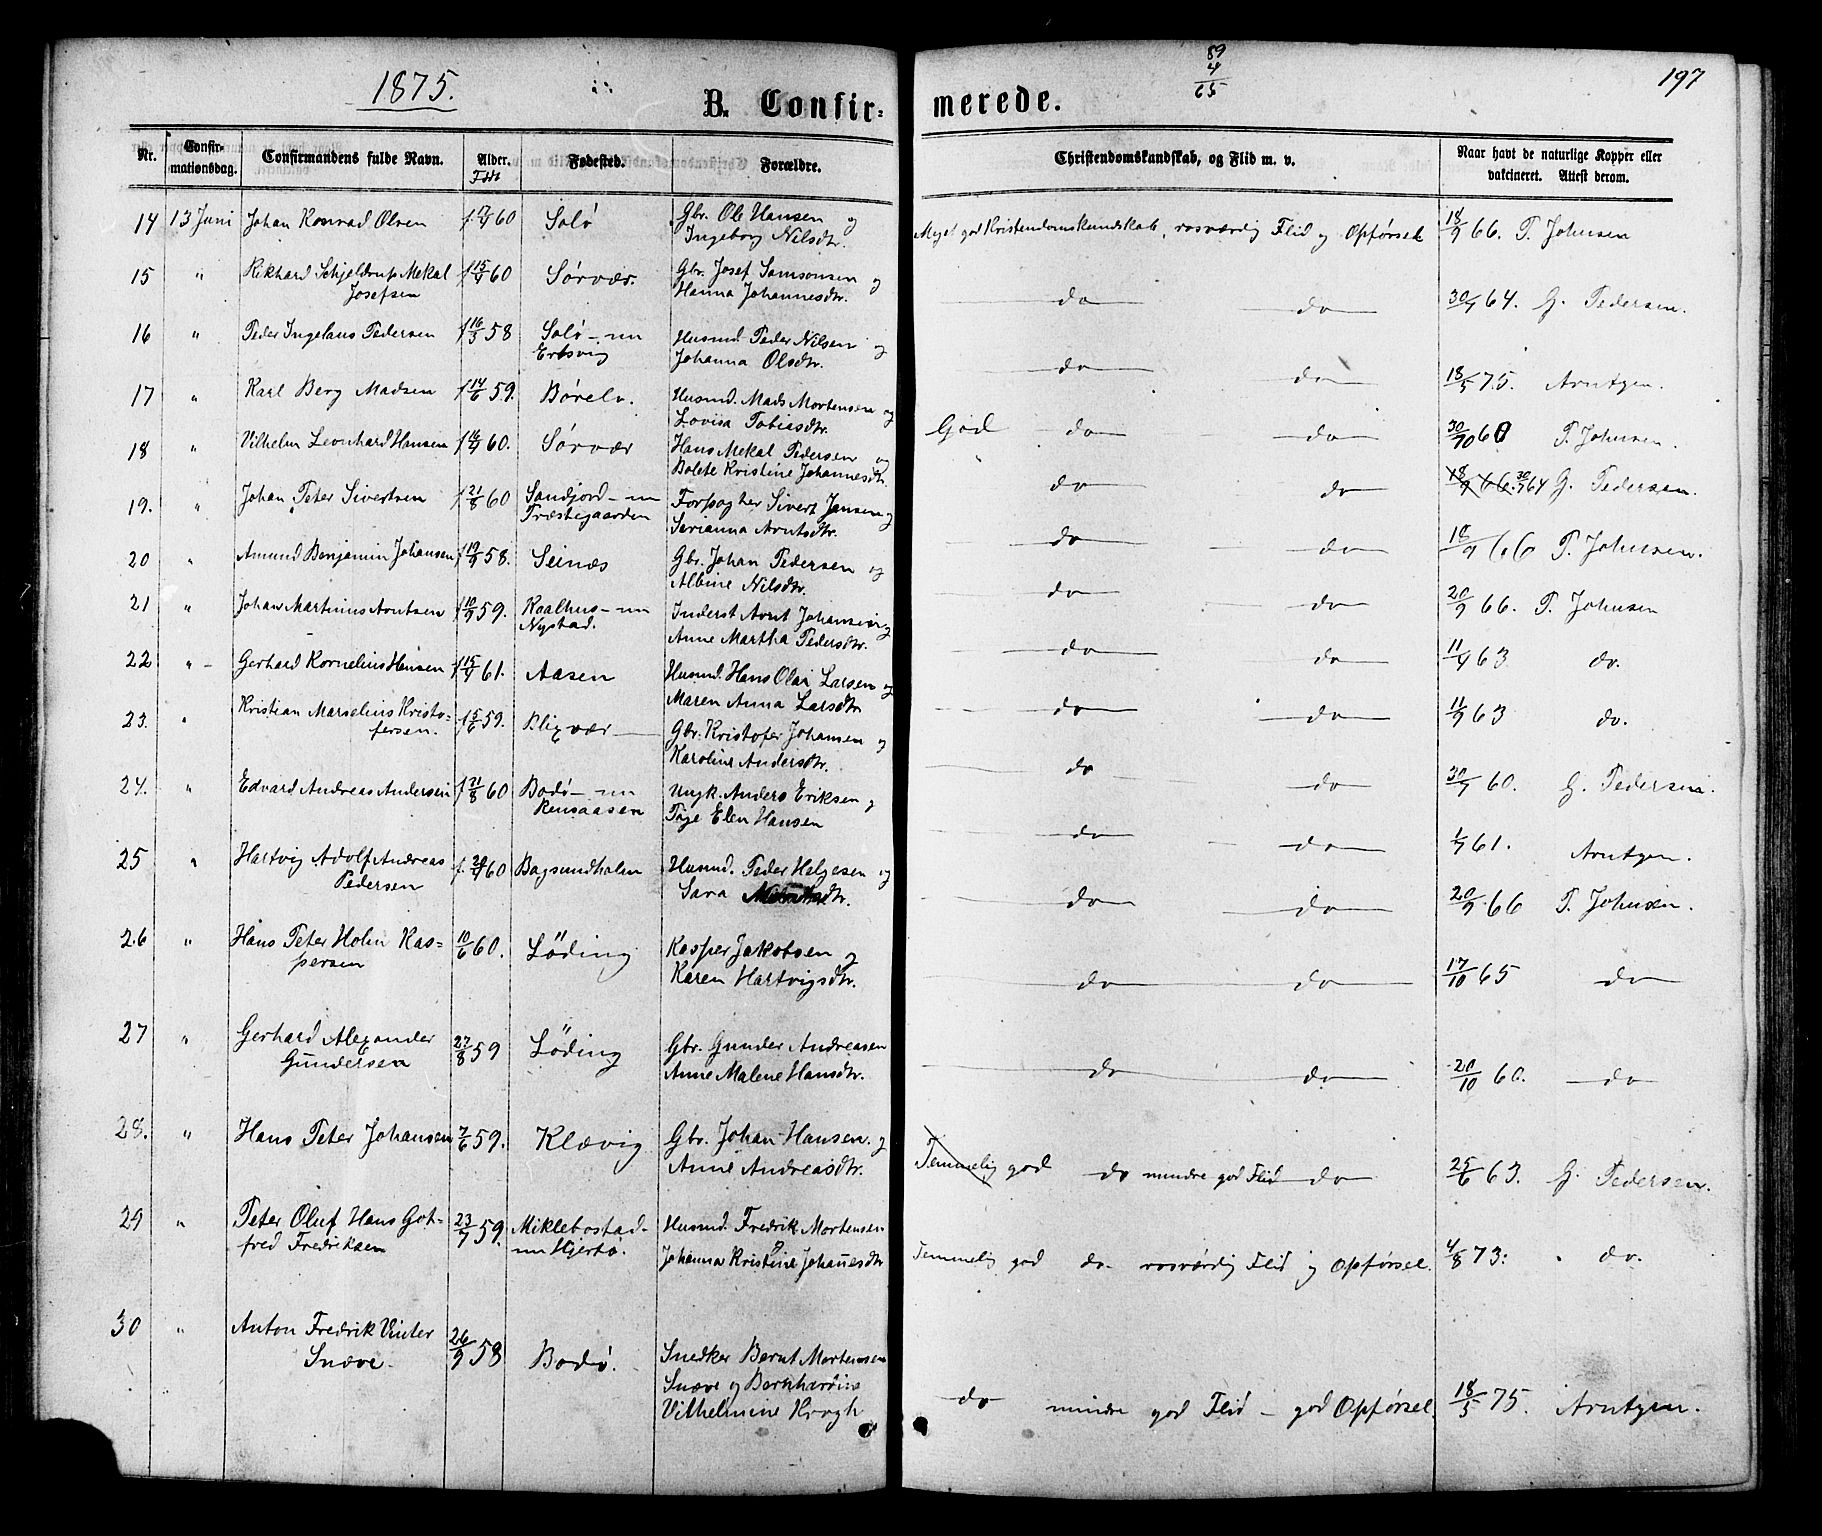 1875.
B. Confir-
merede.
89
4
65
197
Nr. Confir-mationsdag. Confirmandens fulde Navn. Alder. Født Fødested. Forældre. Christendomskundskab, og Flid m. v. Naar havt de naturlige Kopper eller vakcineret. Attest derom.
14 13 Juni Johan Konrad Olsen 60 Solø Gbr. Ole Hansen og Meget god Kristendomskundskab, rosværdig Flid og Opførsel 18/9 66. P. Johnsen
Ingeborg Nilsdtr.
15 " Rikhard Schjeldrup Mekal f 15/4 60 Sørvær. Gbr. Josef Samsonsen og do do 30/7 64. G. Pedersen.
Josefsen Hanna Johannesdtr.
16 " Peder Ingelaus Pedersen f 16/3 58 Solø – nu Husmd. Peder Nilsen og do do 18/5 75. Arntzen.
Ertsvig Johanna Olsdtr.
17 " Karl Berg Madsen f 14/6 59. Børelv. Husmd. Mads Mortensen og God do do 30/10 60 P. Johnsen.
Lovisa Tobiasdtr.
18 " Vilhelm Leonhard Hansen f 16/4 60. Sørvær Hans Mekal Pedersen og do do 18/9 66. 30/7 64 G. Pedersen.
Bolete Kristine Johannesdtr.
19. " Johan Peter Sivertsen f 21/8 60 Sandjord – nu Forpagter Sivert Jansen og do do 18/9 66 P. Johnsen.
Præstegaarden Serianna Arntsdtr.
20 " Amund Benjamin Johansen f 19/9 58. Seinæs Gbr. Johan Pedersen og do do 20/9 66. P. Johnsen
Albine Nilsdtr.
21 " Johan Martinus Arntsen f 10/9 59. Kaalhus – nu Inderst Arnt Johansen og do do 11/4 63 do.
Nystad. Anne Martha Pedersdtr.
22 " Gerhard Kornelius Hansen f 15/4 61. Aasen Husmd. Hans Olai Larsen og do do 11/9 63 do.
Maren Anna Larsdtr
23. " Kristian Marselius Kristo- f 5/6 59. Bligvær Gbr. Kristofer Johansen og do do 30/7 60. G. Pedersen.
fersen. Karoline Andersdtr.
24. " Edvard Andreas Andersen f 21/8 60 Bodø – nu Ungk. Anders Eriksen og do do 1/7 61. Arntzen.
Rensaasen Pige Elen Hansen
25 " Hartvig Adolf Andreas 60 Bagsundholm Husmd. Peder Helgesen og do do 20/9 66 P. Johnsen.
Pedersen Sara
26 " Hans Peter Holm Kas- 10/6 60. Løding Kasper Jakobsen og do do 17/10 65 do
persen Karen Hartvigsdtr.
27 " Gerhard Alexander 27/8 59 Løding Gbr. Gunder Andreasen do do 20/10 60. do
Gundersen Anne Malene Hansdtr.
28. " Hans Peter Johansen 7/6 59. Klævig Gbr. Johan Hansen. og Temmelig god do mindre god Flid do 25/6 63. G. Pedersen.
Anne Andreasdtr.
29 " Peter Oluf Hans Got- 23/7 59. Miklebostad – Husmd. Fredrik Mortensen Temmelig god do rosværdig Flid og Opførsel. 4/8 73. do.
fred Fredriksen nu Hjertø. og Johanna Kristine Johanesdtr
30 " Anton Fredrik Vinter 26/9 58 Bodø. Snedker Bernt Mortensen do mindre god Flid – god Opførsel. 18/5 75. Arntzen.
Snæve Snæve og Bernhardine
Vilhelmine Krogh